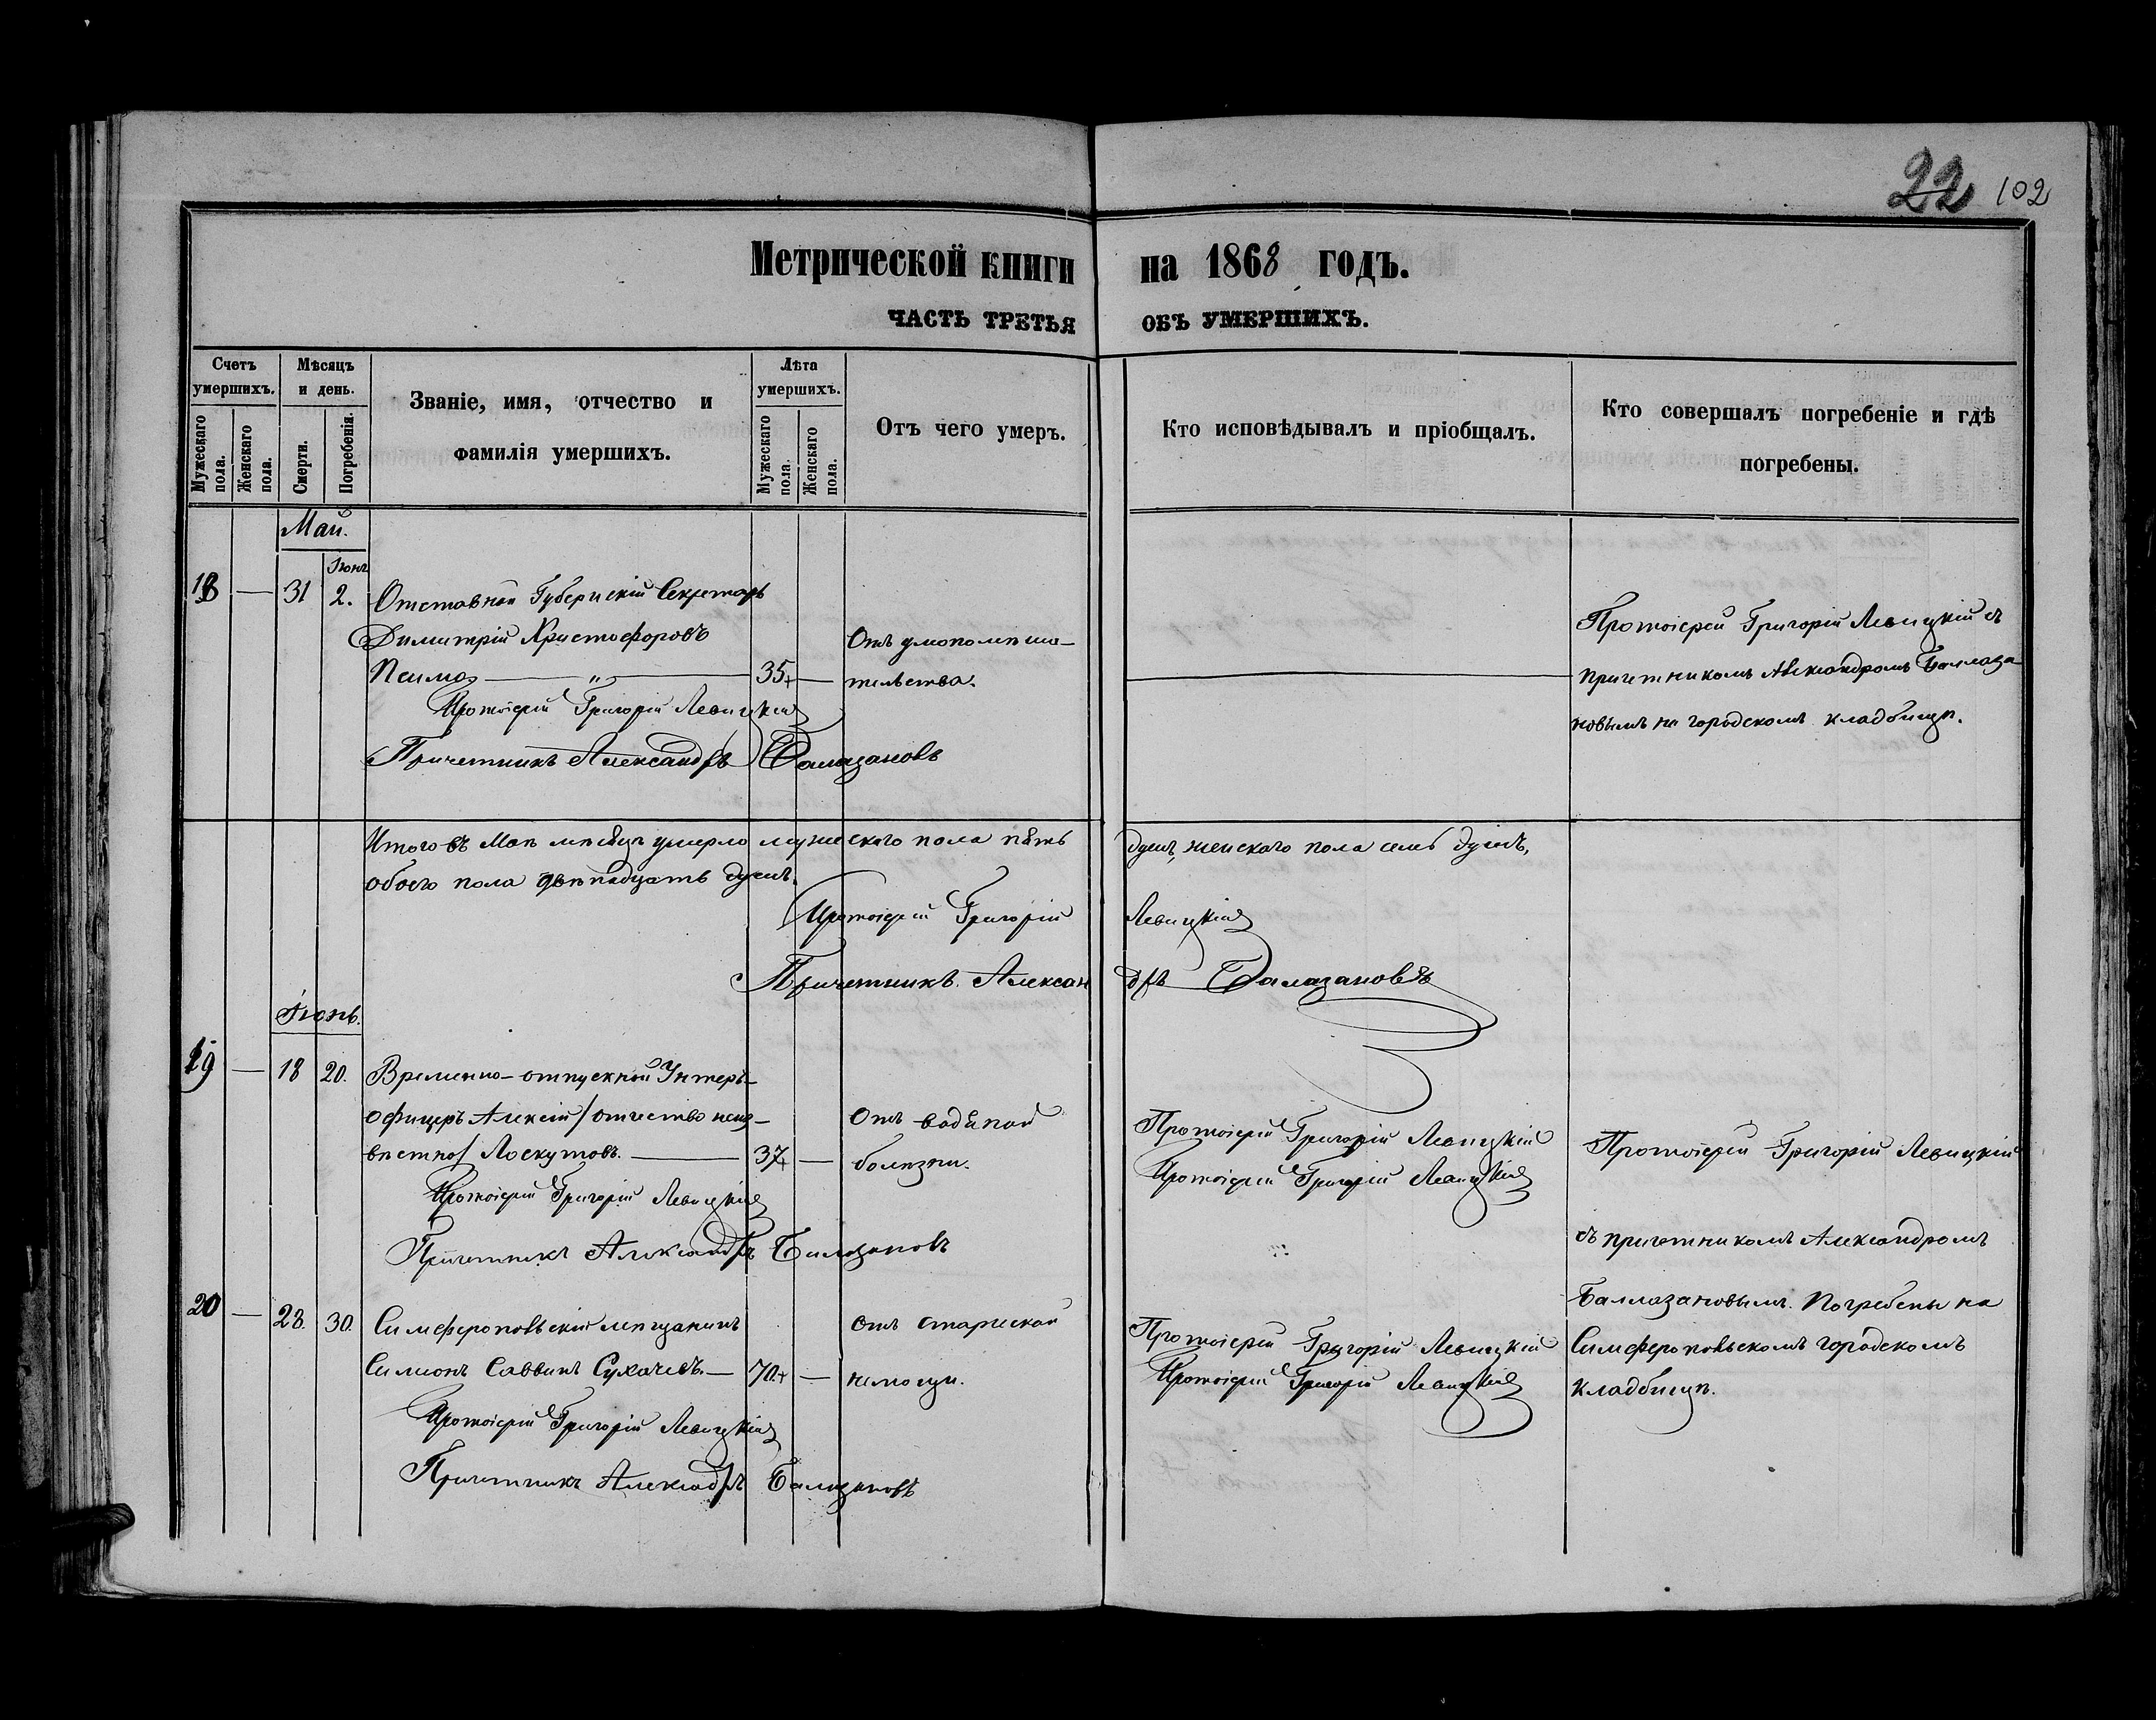 22 102
Метрической книги на 1868 годъ.
ЧАСТЬ ТРЕТЬЯ ОБЪ УМЕРШИХЪ.
Счетъ умершихъ.
Мужескаго пола.
Женскаго пола.
Мѣсяцъ и день.
Смерти.
Погребенія.
Званіе, имя, отчество и
фамилія умершихъ.
Лѣта умершихъ.
Мужескаго пола.
Женскаго пола.
Отъ чего умеръ.
Кто исповѣдывалъ и пріобщалъ.
Кто совершалъ погребеніе и гдѣ
погребены.
Май.
Іюнь
18 — 31 2. Отставной Губернскій Секретарь
Димитрій Христофоровъ
35 —
Отъ умопомѣша-
тельства.
Протоіерей Григорій Левицкій съ
причетникомъ Александромъ Баллаза
новымъ на городскомъ кладбищѣ.
Протоіерей Григорій Левицкій
Причетникъ Александръ Балазановъ
Итого въ Маѣ мѣсяцѣ умерло мужескаго пола пять душъ, женскаго пола семь душъ,
обоего пола двѣнадцать душъ.
Протоіерей Григорій Левицкій
Причетникъ Александръ Балазановъ
Іюнь.
19 — 18 20. Временно-отпускной Унтеръ-
офицеръ Алексій /отчество неиз-
вѣстно/ Лоскутовъ. — 37 —
Отъ водяной
болѣзни.
Протоіерей Григорій Левицкій
Протоіерей Григорій Левицкій
Протоіерей Григорій Левицкій
съ причетникомъ Александромъ
Баллазановымъ. Погребены на
Симферопольскомъ городскомъ
кладбищѣ.
Протоіерей Григорій Левицкій
Причетникъ Александръ Балазановъ
20 — 28. 30. Симферопольскій мѣщанинъ
Симеонъ Саввинъ Сухачевъ — 70 —
Отъ старческой
немощи.
Протоіерей Григорій Левицкій
Протоіерей Григорій Левицкій
Протоіерей Григорій Левицкій
Причетникъ Александръ Балазановъ